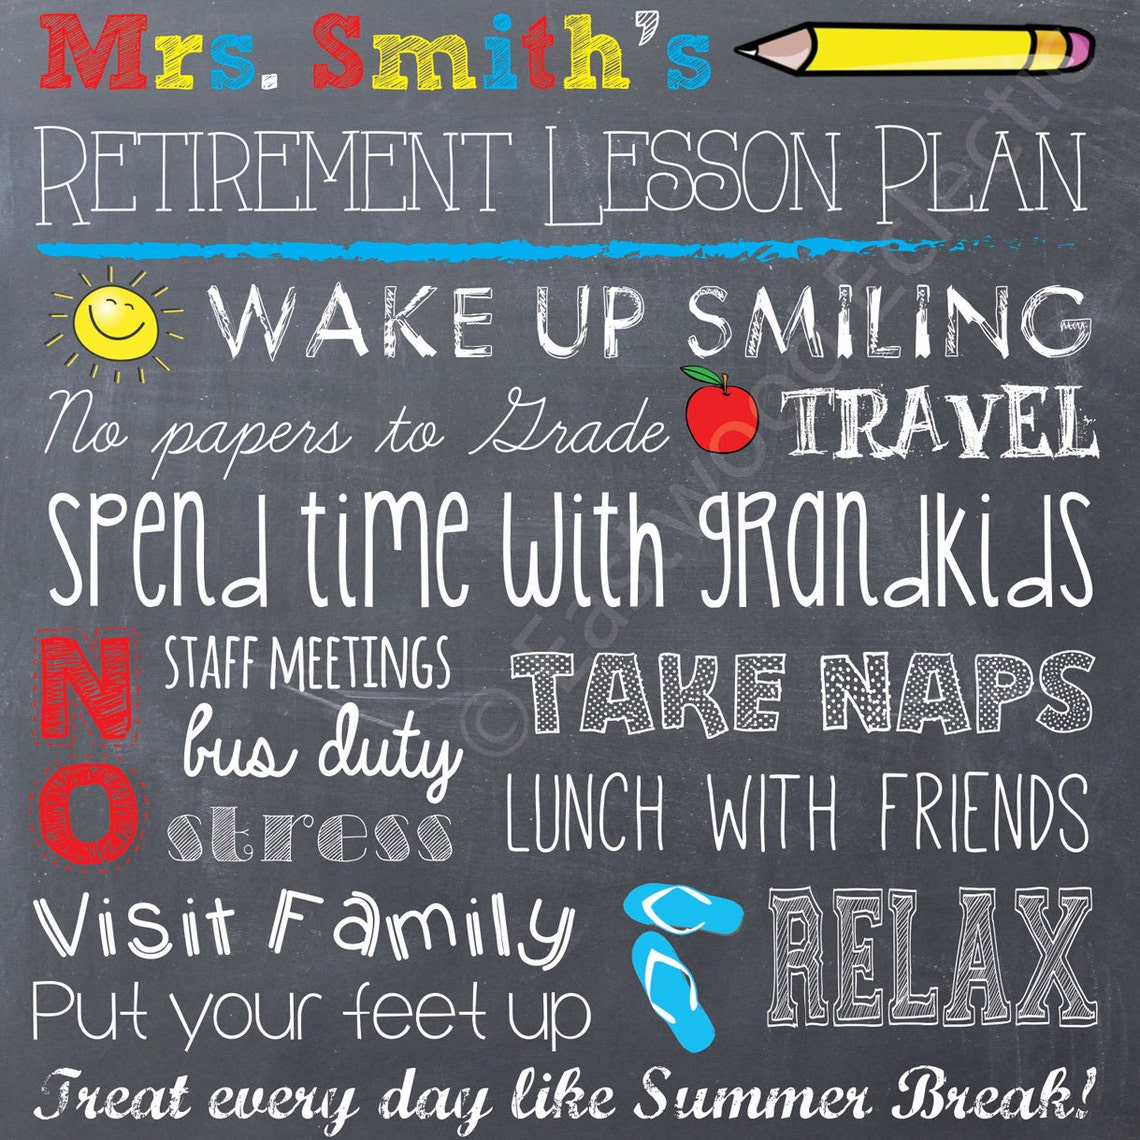 Mrs. Smith's
RETIREMENT LESSON PLAN
WAKE UP SMILING
No papers to Grade
TRAVEL
Spend time with grandkids
NO
STAFF MEETINGS
bus duty
stress
TAKE NAPS
LUNCH WITH FRIENDS
Visit Family
RELAX
Put your feet up
Treat every day like Summer Break!
© Eastwood Eclectic